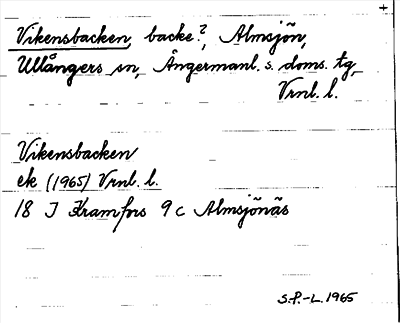 Vikensbacken, backe?, Almsjön,
Ullångers sn, Ångermanl. s. doms. tg,
Vrnl. l.
Vikensbacken
ek (1965) Vrnl. l.
18 J Kramfors 9 c Almsjönäs
S.P.-L. 1965